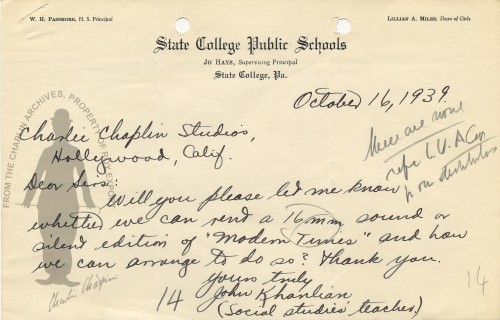 W. H. Passmore, H. S. Principal
Lillian A. Miles, Dean of Girls
State College Public Schools
Jo Hays, Supervising Principal
State College, Pa.
October 16, 1939.
Charlie Chaplin Studios,
Hollywood, Calif.
There are none
refer
Dear Sirs:
Will you please let me know
whether we can rent a 16 mm sound or
silent edition of "Modern Times" and how
we can arrange to do so? Thank you.
Yours truly
John Khanlian
(Social studies teacher)
14
14
FROM THE CHAPLIN ARCHIVES, PROPERTY OF
Charlie Chaplin